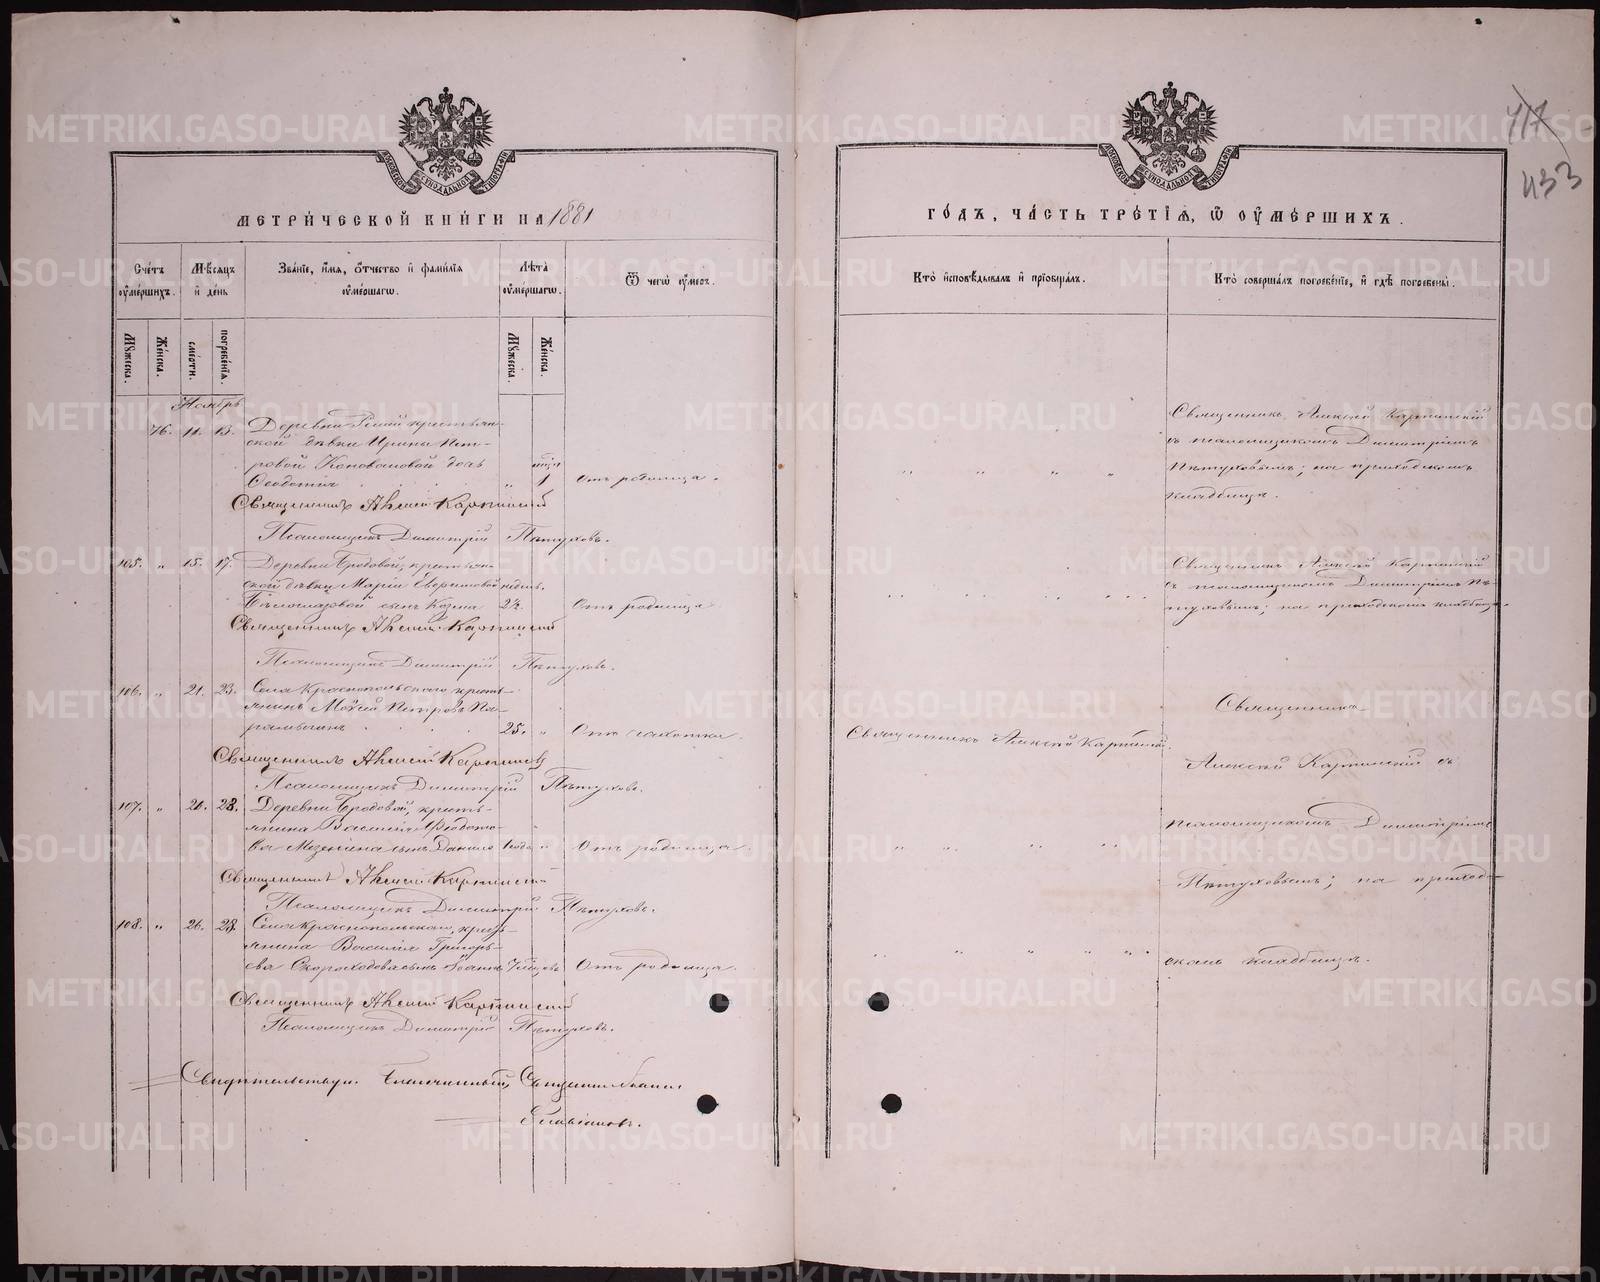 417
433
МЕТРИЧЕСКОЙ КНИГИ НА 1881
ГОДЪ, ЧАСТЬ ТРЕТІЯ, Ѿ ОУМЕРШИХЪ.
Счетъ оумершихъ.
Мѣсяцъ и день
Званіе, имя, отчество и фамилія оумершагѡ.
Лѣта оумершагѡ.
Ѿ чегѡ оумеръ.
Кто исповѣдывалъ и пріобщалъ.
Кто совершалъ погребеніе, и гдѣ погребены.
Мужеска.
Женска.
смерти.
погребенія.
Мужеска.
Женска.
Ноябрь
76. 11. 13. Деревни крестьян-
ской дѣвки Ирины Пет-
ровой Коноваловой дочь
Ѳеодотія 1 Отъ родимца.
Священникъ Алексій Карпинскій
Псаломщикъ Димитрій Пѣтуховъ.
Священникъ Алексій Карпинскій
съ псаломщикомъ Димитріемъ
Пѣтуховымъ; на приходскомъ
кладбищѣ.
105. " 15. 17. Деревни Бродовой, крестьян-
ской дѣвки Маріи недѣль.
сынъ Козма 2½ Отъ родимца.
Священникъ Алексій Карпинскій
Псаломщикъ Димитрій Пѣтуховъ.
Священникъ Алексій Карпинскій
съ псаломщикомъ Димитріемъ Пѣ-
туховымъ; на приходскомъ кладбищѣ.
106. " 21. 23. Села Краснопольского кресть-
янинъ Моѵсей Петровъ Па-
25. " Отъ чахотки.
Священникъ Алексій Карпинскій
Псаломщикъ Димитрій Пѣтуховъ.
Священникъ Алексій Карпинскій.
Священникъ
Алексій Карпинскій съ
псаломщикомъ Димитріемъ
Пѣтуховымъ; на приход-
скомъ кладбищѣ.
107. " 26. 28. Деревни Бродовой, кресть-
янина Василія Ѳеодото-
ва Мезенина сынъ Данило 1 года " Отъ родимца.
Священникъ Алексій Карпинскій
Псаломщикъ Димитрій Пѣтуховъ.
108. " 26. 28. Села Краснопольского, крест-
янина Василія Григорь-
ева Скороходова сынъ Іоаннъ 7 мѣсяцевъ Отъ родимца.
Священникъ Алексій Карпинскій
Псаломщикъ Димитрій Пѣтуховъ.
Свидѣтельствую. Благочинный, Священникъ
METRIKI.GASO-URAL.RU